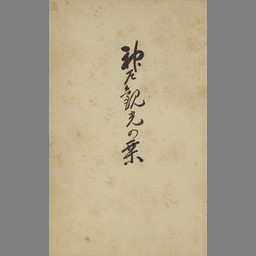 神戸観光の栞